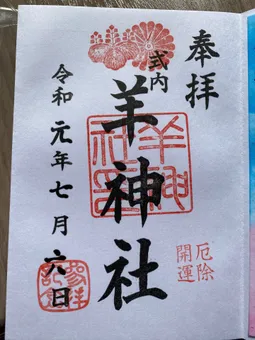 奉拝
式内
羊神社
羊神社
厄除
開運
令和元年七月六日
参拝
記念